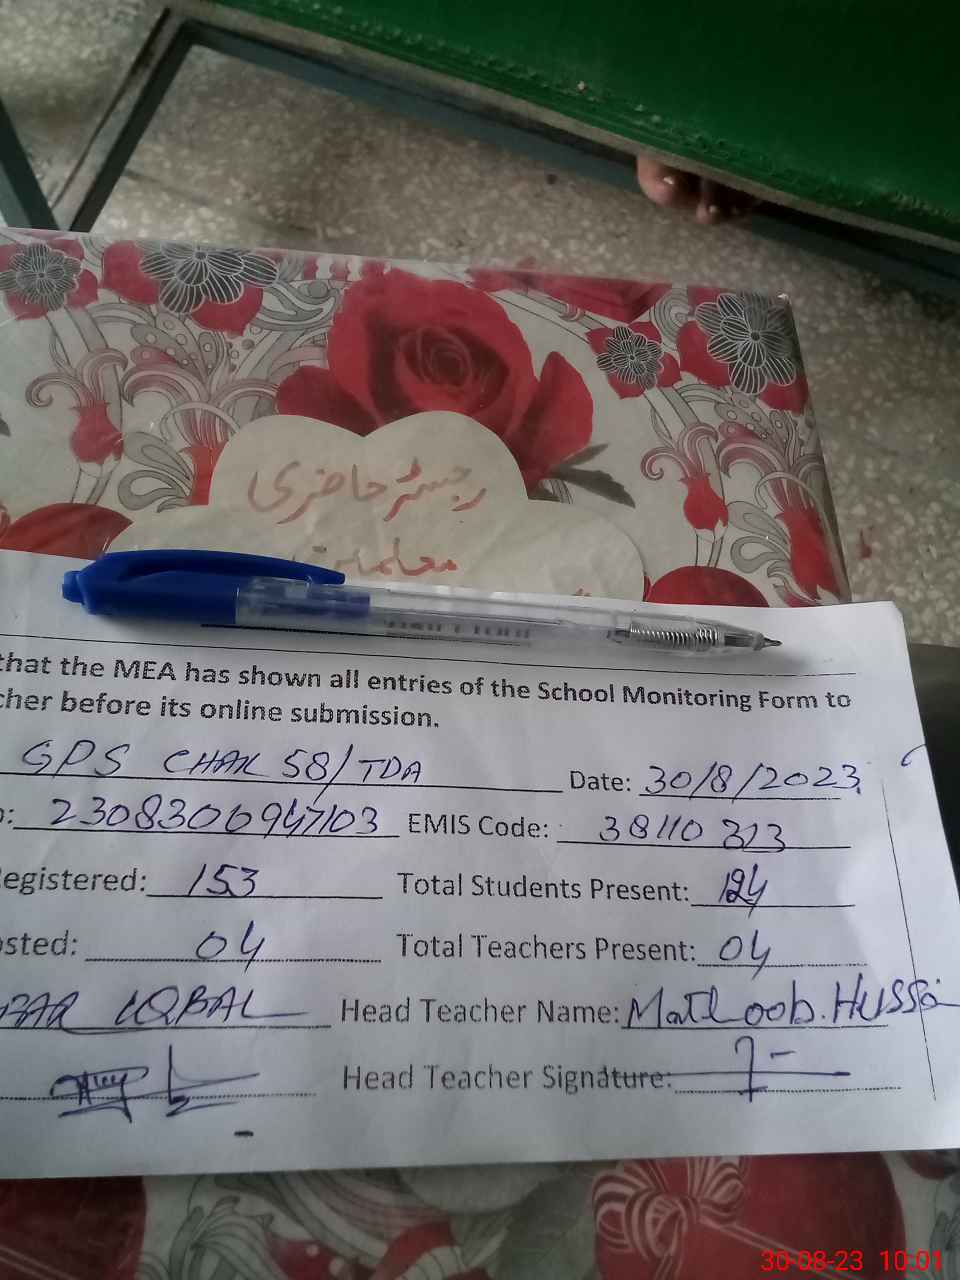 رجسٹر حاضری
معلمین
that the MEA has shown all entries of the School Monitoring Form to
cher before its online submission.
GPS CHAK 58/TDA Date: 30/8/2023
o: 2308300947103 EMIS Code: 38110323
egistered: 153 Total Students Present: 124
osted: 04 Total Teachers Present: 04
BAR IQBAL Head Teacher Name: Matloob. Hussai
Head Teacher Signature:
30-08-23 10:01